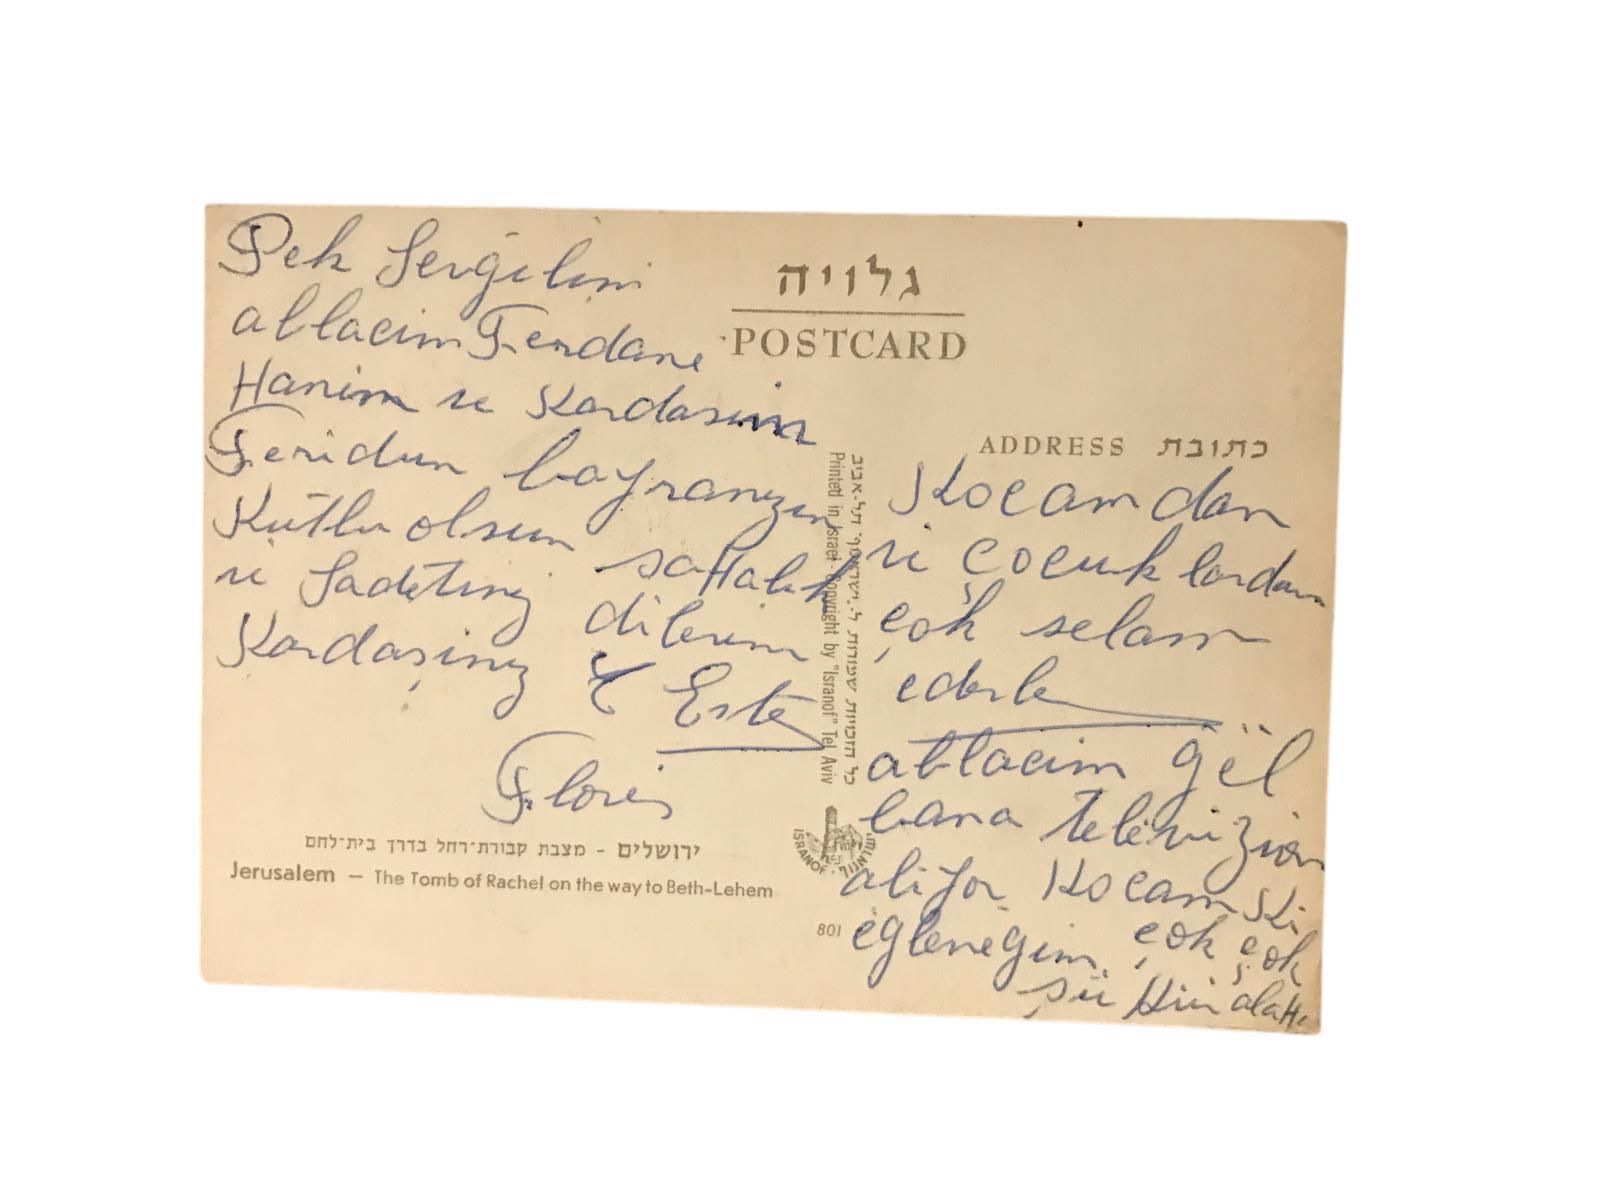 Pek Sevgilim
ablacim Ferdane
Hanim ve Kardasim
Feridun bayramzin
Kutlu olsun saHalik
ve Sadetiniz dilerim
Kardaşiniz Y Ester
Floris
ירושלים - מצבת קבורת־רחל בדרך בית־לחם
Jerusalem — The Tomb of Rachel on the way to Beth-Lehem
גלויה
POSTCARD
כל הזכויות שמורות ל„ישראנוף" תל-אביב
Printed in Israel Copyright by "Isranof" Tel Aviv
ISRANOF
801
ADDRESS כתובת
Kocamdan
ve çocuklardan
çok selam
ederle
ablacim gël
bana televizion
aliyor Kocam Ki
eglenegim çok çok
şü Kür alaH.